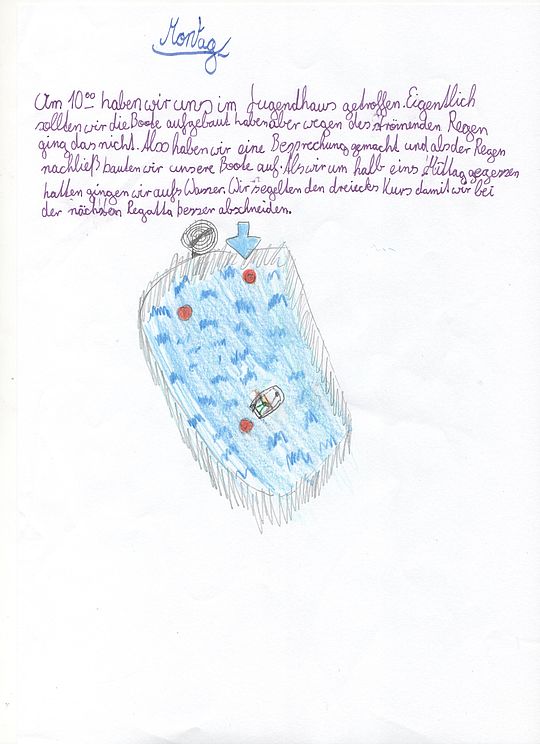 Montag
Am 10⁰⁰ haben wir uns im Jugendhaus getroffen. Eigentlich
sollten wir die Boote aufgebaut haben aber wegen des strömenden Regen
ging das nicht. Also haben wir eine Besprechung gemacht und als der Regen
nachließ bauten wir unsere Boote auf. Als wir um halb eins Mittag gegessen
hatten gingen wir aufs Wasser. Wir segelten den dreiecks Kurs damit wir bei
der nächsten Regatta besser abschneiden.